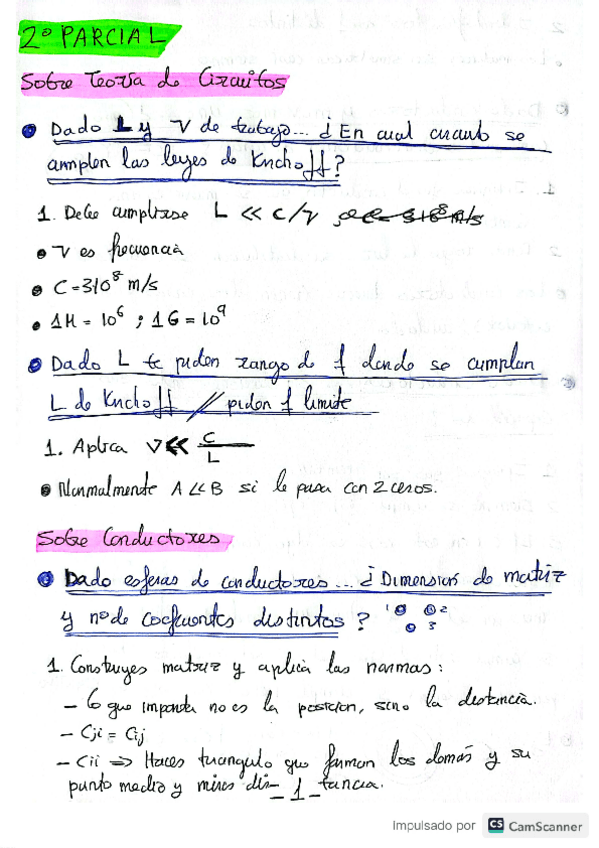 2º PARCIAL
Sobre Teoria de Circuitos
Dado L y V de trabajo... ¿En cual cuanto se
cumplen las leyes de Kirchoff?
1. Debe cumplirse L << C/V
V es frecuencia
C = 3·10⁸ m/s
1M = 10⁶ ; 1G = 10⁹
Dado L te piden rango de f donde se cumplan
L de Kirchoff // piden f limite
1. Aplica V << C/L
Normalmente A << B si le pasa con 2 ceros.
Sobre Conductores
Dado esferas de conductores... ¿Dimension de matriz
y nº de coeficientes distintos? 1 2
3
1. Construyes matriz y aplica las normas:
- Lo que importa no es la posicion, sino la distancia.
- Cji = Cij
- Cii => Haces triangulo que forman los demás y su
punto medio y miras dis- 1 -tancia.
Impulsado por CS CamScanner